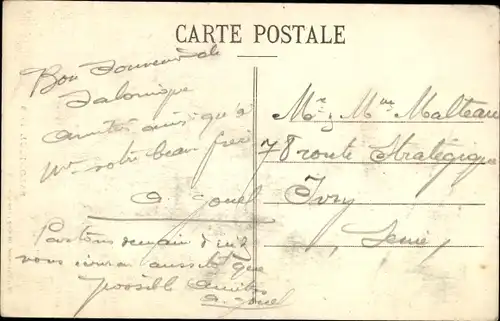 CARTE POSTALE
Bon Souvenir de
Salonique
amitiés ainsi qu'à
votre beau frère
Partons demain d'ici
vous écrirai aussitôt que
possible amitiés
Mr & Mme Malteau
78 route Stratégique
Ivry
Seine